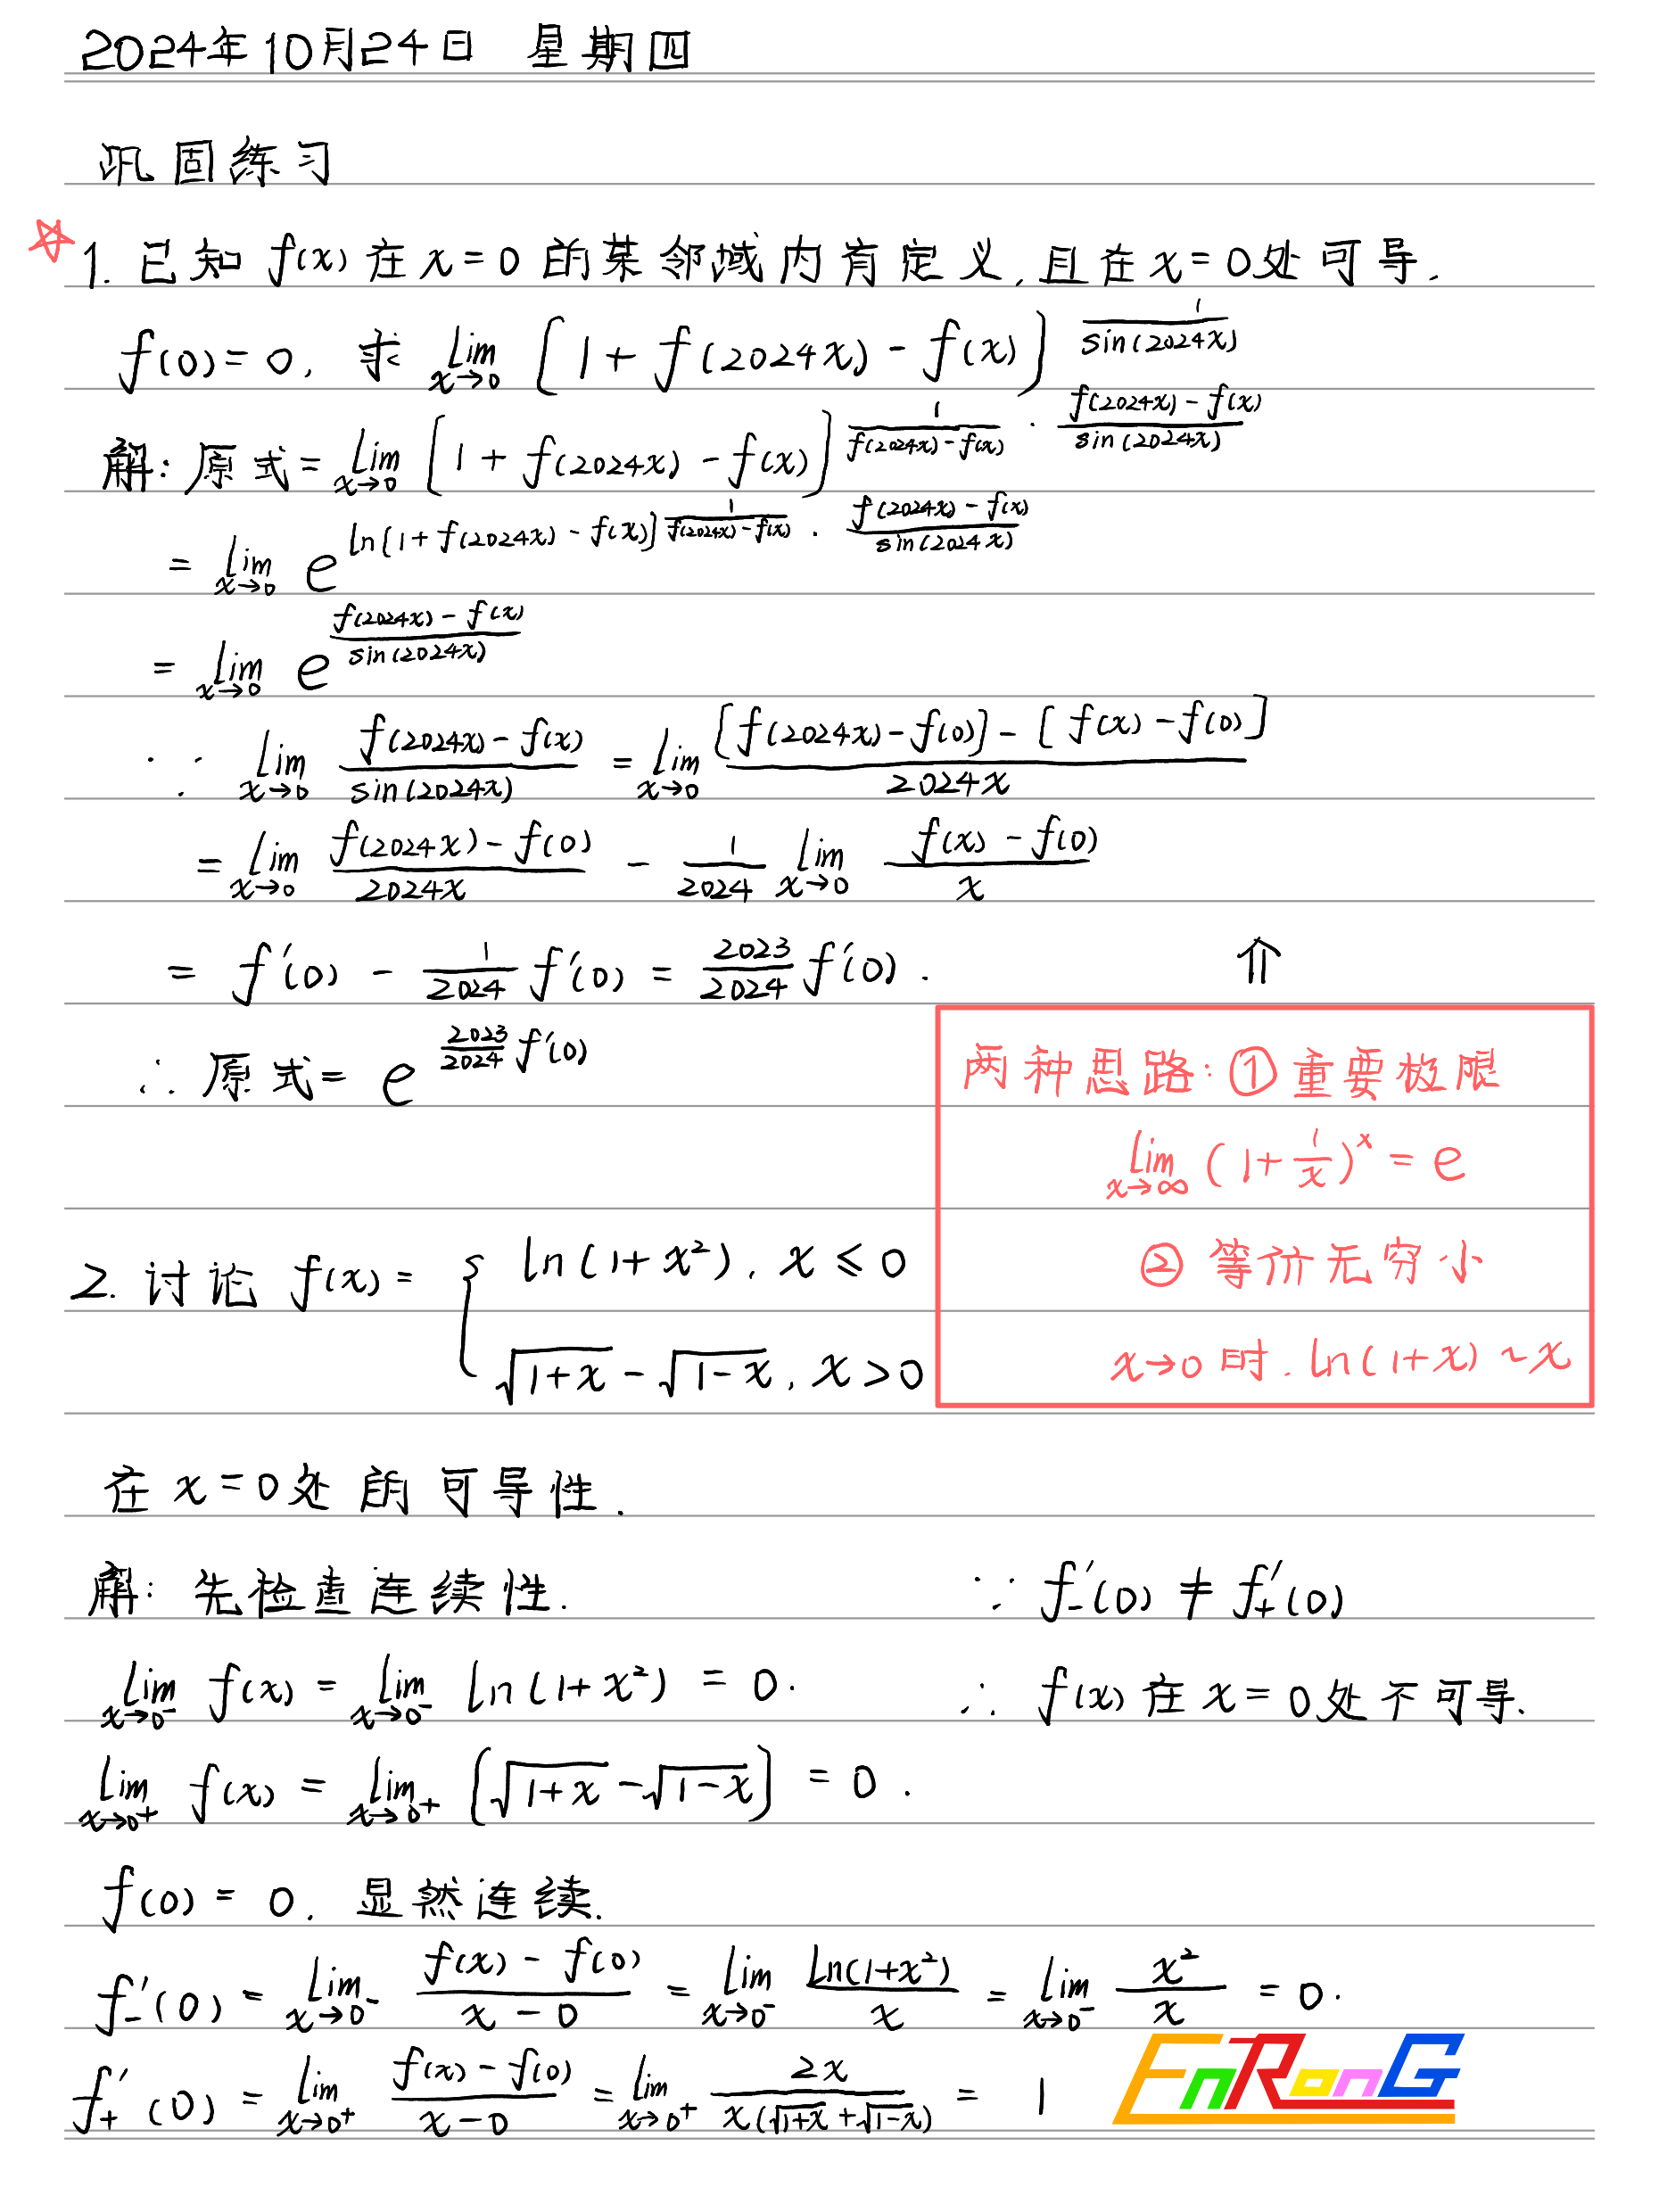 2024年10月24日 星期四
巩固练习
☆1. 已知 f(x) 在 x=0 的某邻域内有定义,且在 x=0处可导.
f(0)=0, 求 lim_{x→0} [1+f(2024x)-f(x)]^{\frac{1}{sin(2024x)}}
解: 原式= lim_{x→0} [1+f(2024x)-f(x)]^{\frac{1}{f(2024x)-f(x)} · \frac{f(2024x)-f(x)}{sin(2024x)}}
= lim_{x→0} e^{ln[1+f(2024x)-f(x)]^{\frac{1}{f(2024x)-f(x)}} · \frac{f(2024x)-f(x)}{sin(2024x)}}
= lim_{x→0} e^{\frac{f(2024x)-f(x)}{sin(2024x)}}
∵ lim_{x→0} \frac{f(2024x)-f(x)}{sin(2024x)} = lim_{x→0} \frac{[f(2024x)-f(0)]-[f(x)-f(0)]}{2024x}
= lim_{x→0} \frac{f(2024x)-f(0)}{2024x} - \frac{1}{2024} lim_{x→0} \frac{f(x)-f(0)}{x}
= f'(0) - \frac{1}{2024} f'(0) = \frac{2023}{2024} f'(0). ⇑
∴ 原式= e^{\frac{2023}{2024} f'(0)}
两种思路: ①重要极限
lim_{x→∞} (1+\frac{1}{x})^x = e
② 等价无穷小
x→0 时. ln(1+x) ~ x
2. 讨论 f(x) = { ln(1+x²), x ≤ 0
√(1+x) - √(1-x), x > 0
在 x=0处的可导性.
解: 先检查连续性.
lim_{x→0⁻} f(x) = lim_{x→0⁻} ln(1+x²) = 0.
lim_{x→0⁺} f(x) = lim_{x→0⁺} [√(1+x) - √(1-x)] = 0.
f(0) = 0. 显然连续.
f₋'(0) = lim_{x→0⁻} \frac{f(x)-f(0)}{x-0} = lim_{x→0⁻} \frac{ln(1+x²)}{x} = lim_{x→0⁻} \frac{x²}{x} = 0.
f₊'(0) = lim_{x→0⁺} \frac{f(x)-f(0)}{x-0} = lim_{x→0⁺} \frac{2x}{x(√(1+x)+√(1-x))} = 1
∵ f₋'(0) ≠ f₊'(0)
∴ f(x) 在 x=0处不可导.
EnRonG